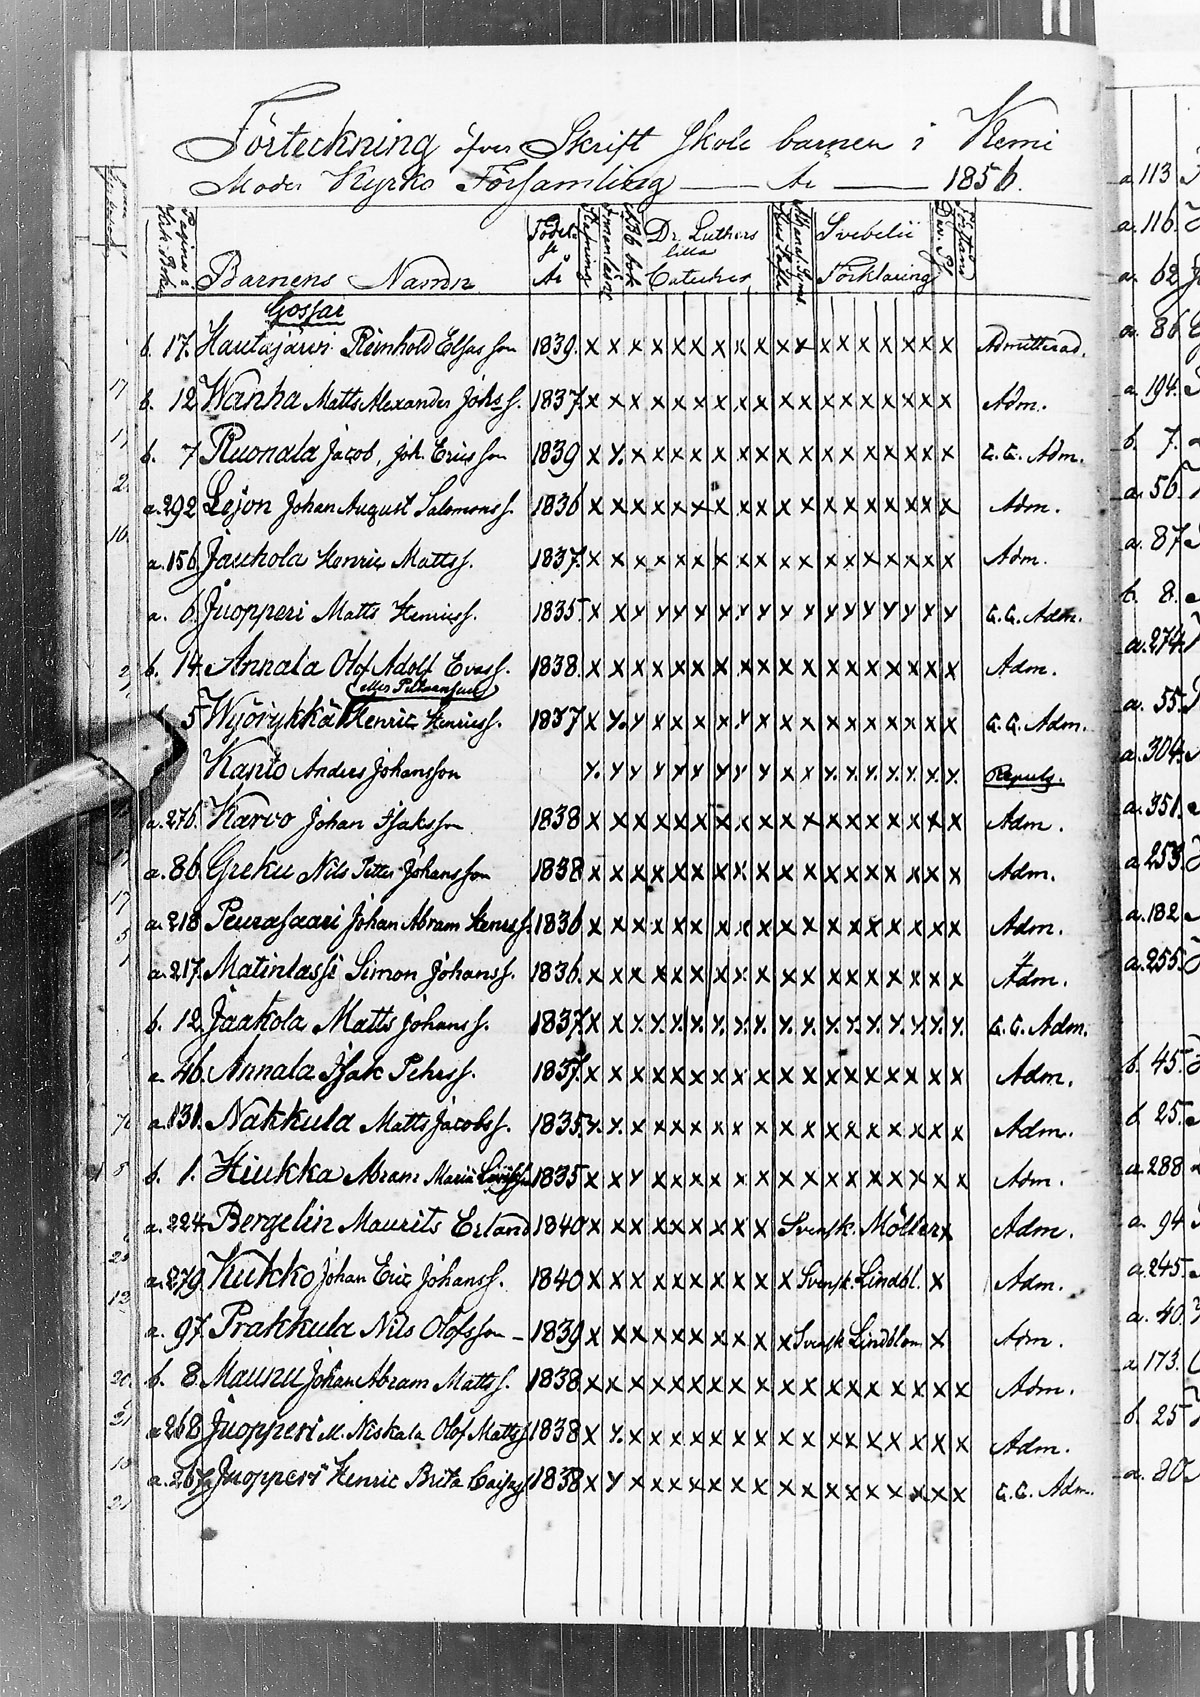 Förteckning öfver Skrift Skole barnen i Kemi
Moder Kyrko Församling — År — 1856.
Barnens Namn Födelse År Dr. Luthers lilla Cateches Svebelii Förklaring
Gossar
b. 17. Hautajärvi Reinhold Elias son 1839. x x x x x x x x x x x x x x x x x Admitterad.
b. 12 Wanha Matts Alexander Johs s. 1837. x x x x x x x x x x x x x x x x x Adm.
b. 7 Ruonala Jacob, Joh. Erics son 1839 x x x x x x x x x x x x x x x x x G. G. Adm.
a. 292 Lejon Johan August Salomons s. 1836 x x x x x x x x x x x x x x x x x Adm.
a. 156 Jauhola Henric Matts s. 1837. x x x x x x x x x x x x x x x x x Adm.
a. 6. Juopperi Matts Henrics s. 1835. x x x x x x x x x x x x x x x x x G. G. Adm.
b. 14. Annala Olof Adolf Evas s. 1838. x x x x x x x x x x x x x x x x x Adm.
5 Wyörykkä Henric Henrics s. 1837 x x x x x x x x x x x x x x x x x G. G. Adm.
Kanto Anders Johansson x x x x x x x x x x x x x x x x x Repuls.
a. 276. Karvo Johan Isaksson 1838 x x x x x x x x x x x x x x x x x Adm.
a. 86. Greku Nils Petter Johansson 1838 x x x x x x x x x x x x x x x x x Adm.
a. 218 Peurasaari Johan Abram Henrs s. 1836 x x x x x x x x x x x x x x x x x Adm.
a. 217. Matinlassi Simon Johans s. 1836. x x x x x x x x x x x x x x x x x Adm.
b. 12. Jaakola Matts Johans s. 1837 x x x x x x x x x x x x x x x x x G. G. Adm.
a. 46. Annala Isak Pehrs s. 1837. x x x x x x x x x x x x x x x x x Adm.
a. 131. Nakkula Matts Jacobs s. 1835. x x x x x x x x x x x x x x x x x Adm.
b. 1. Hiukka Abram Maria 1835 x x x x x x x x x x x x x x x x x Adm.
a. 224 Bergelin Maurits Erland 1840 x x x x x x x x x Svensk. Möller x Adm.
a. 279. Kukko Johan Eric Johans s. 1840 x x x x x x x x x x Svensk. Lindbl. x Adm.
a. 97 Prakkula Nils Olofsson – 1839 x x x x x x x x x x Svensk Lindblom x Adm.
b. 8. Maunu Johan Abram Matts s. 1838 x x x x x x x x x x x x x x x x x Adm.
a. 268 Juopperi M. Niskala Olof Matts s 1838 x x x x x x x x x x x x x x x x x Adm.
a. 267 Juopperi Henric Brita Caisas s 1838 x x x x x x x x x x x x x x x x x G. G. Adm.
a. 113
a. 116.
a. 62
a. 86
a. 194.
b. 7.
a. 56.
a. 87
b. 8.
a. 274.
a. 55.
a. 304.
a. 351.
a. 253.
a. 182
a. 255.
b. 45.
b. 25.
a. 288
a. 94
a. 245.
a. 40.
a. 173.
b. 25
a. 80